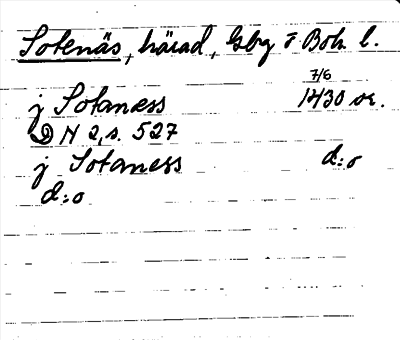 Sotenäs, härad, Gbg o Boh. l.
7/6
j Sotanæss 1430 or.
DN 2, s. 527
j Sotaness d:o
d:o